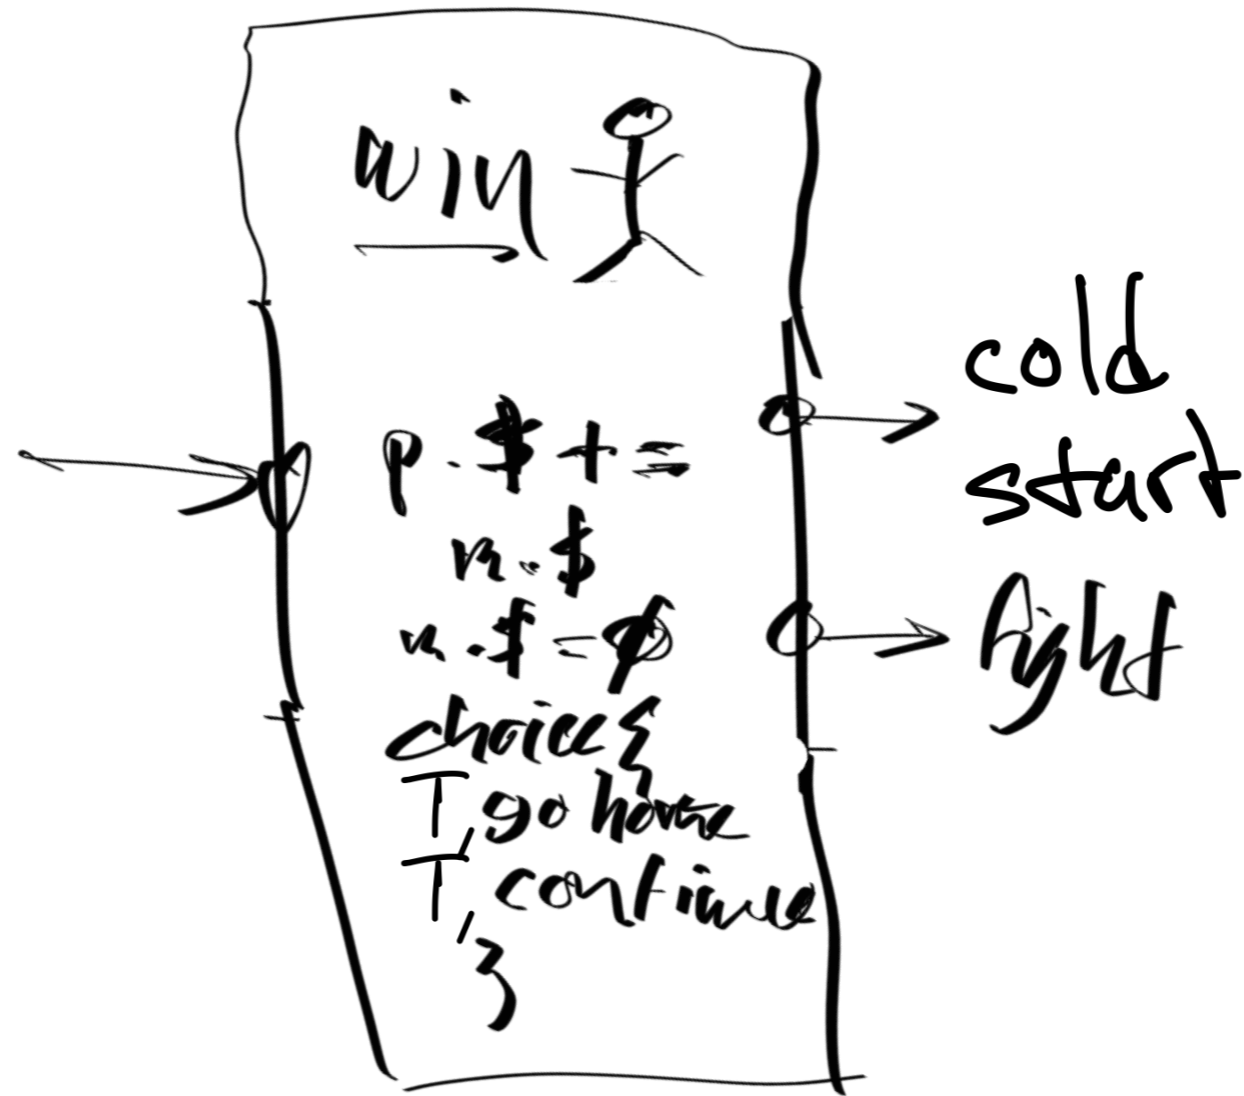 win
p.$ +=
m.$
m.$ = Ø
choice{
T, go home
T, continue
}
cold
start
fight